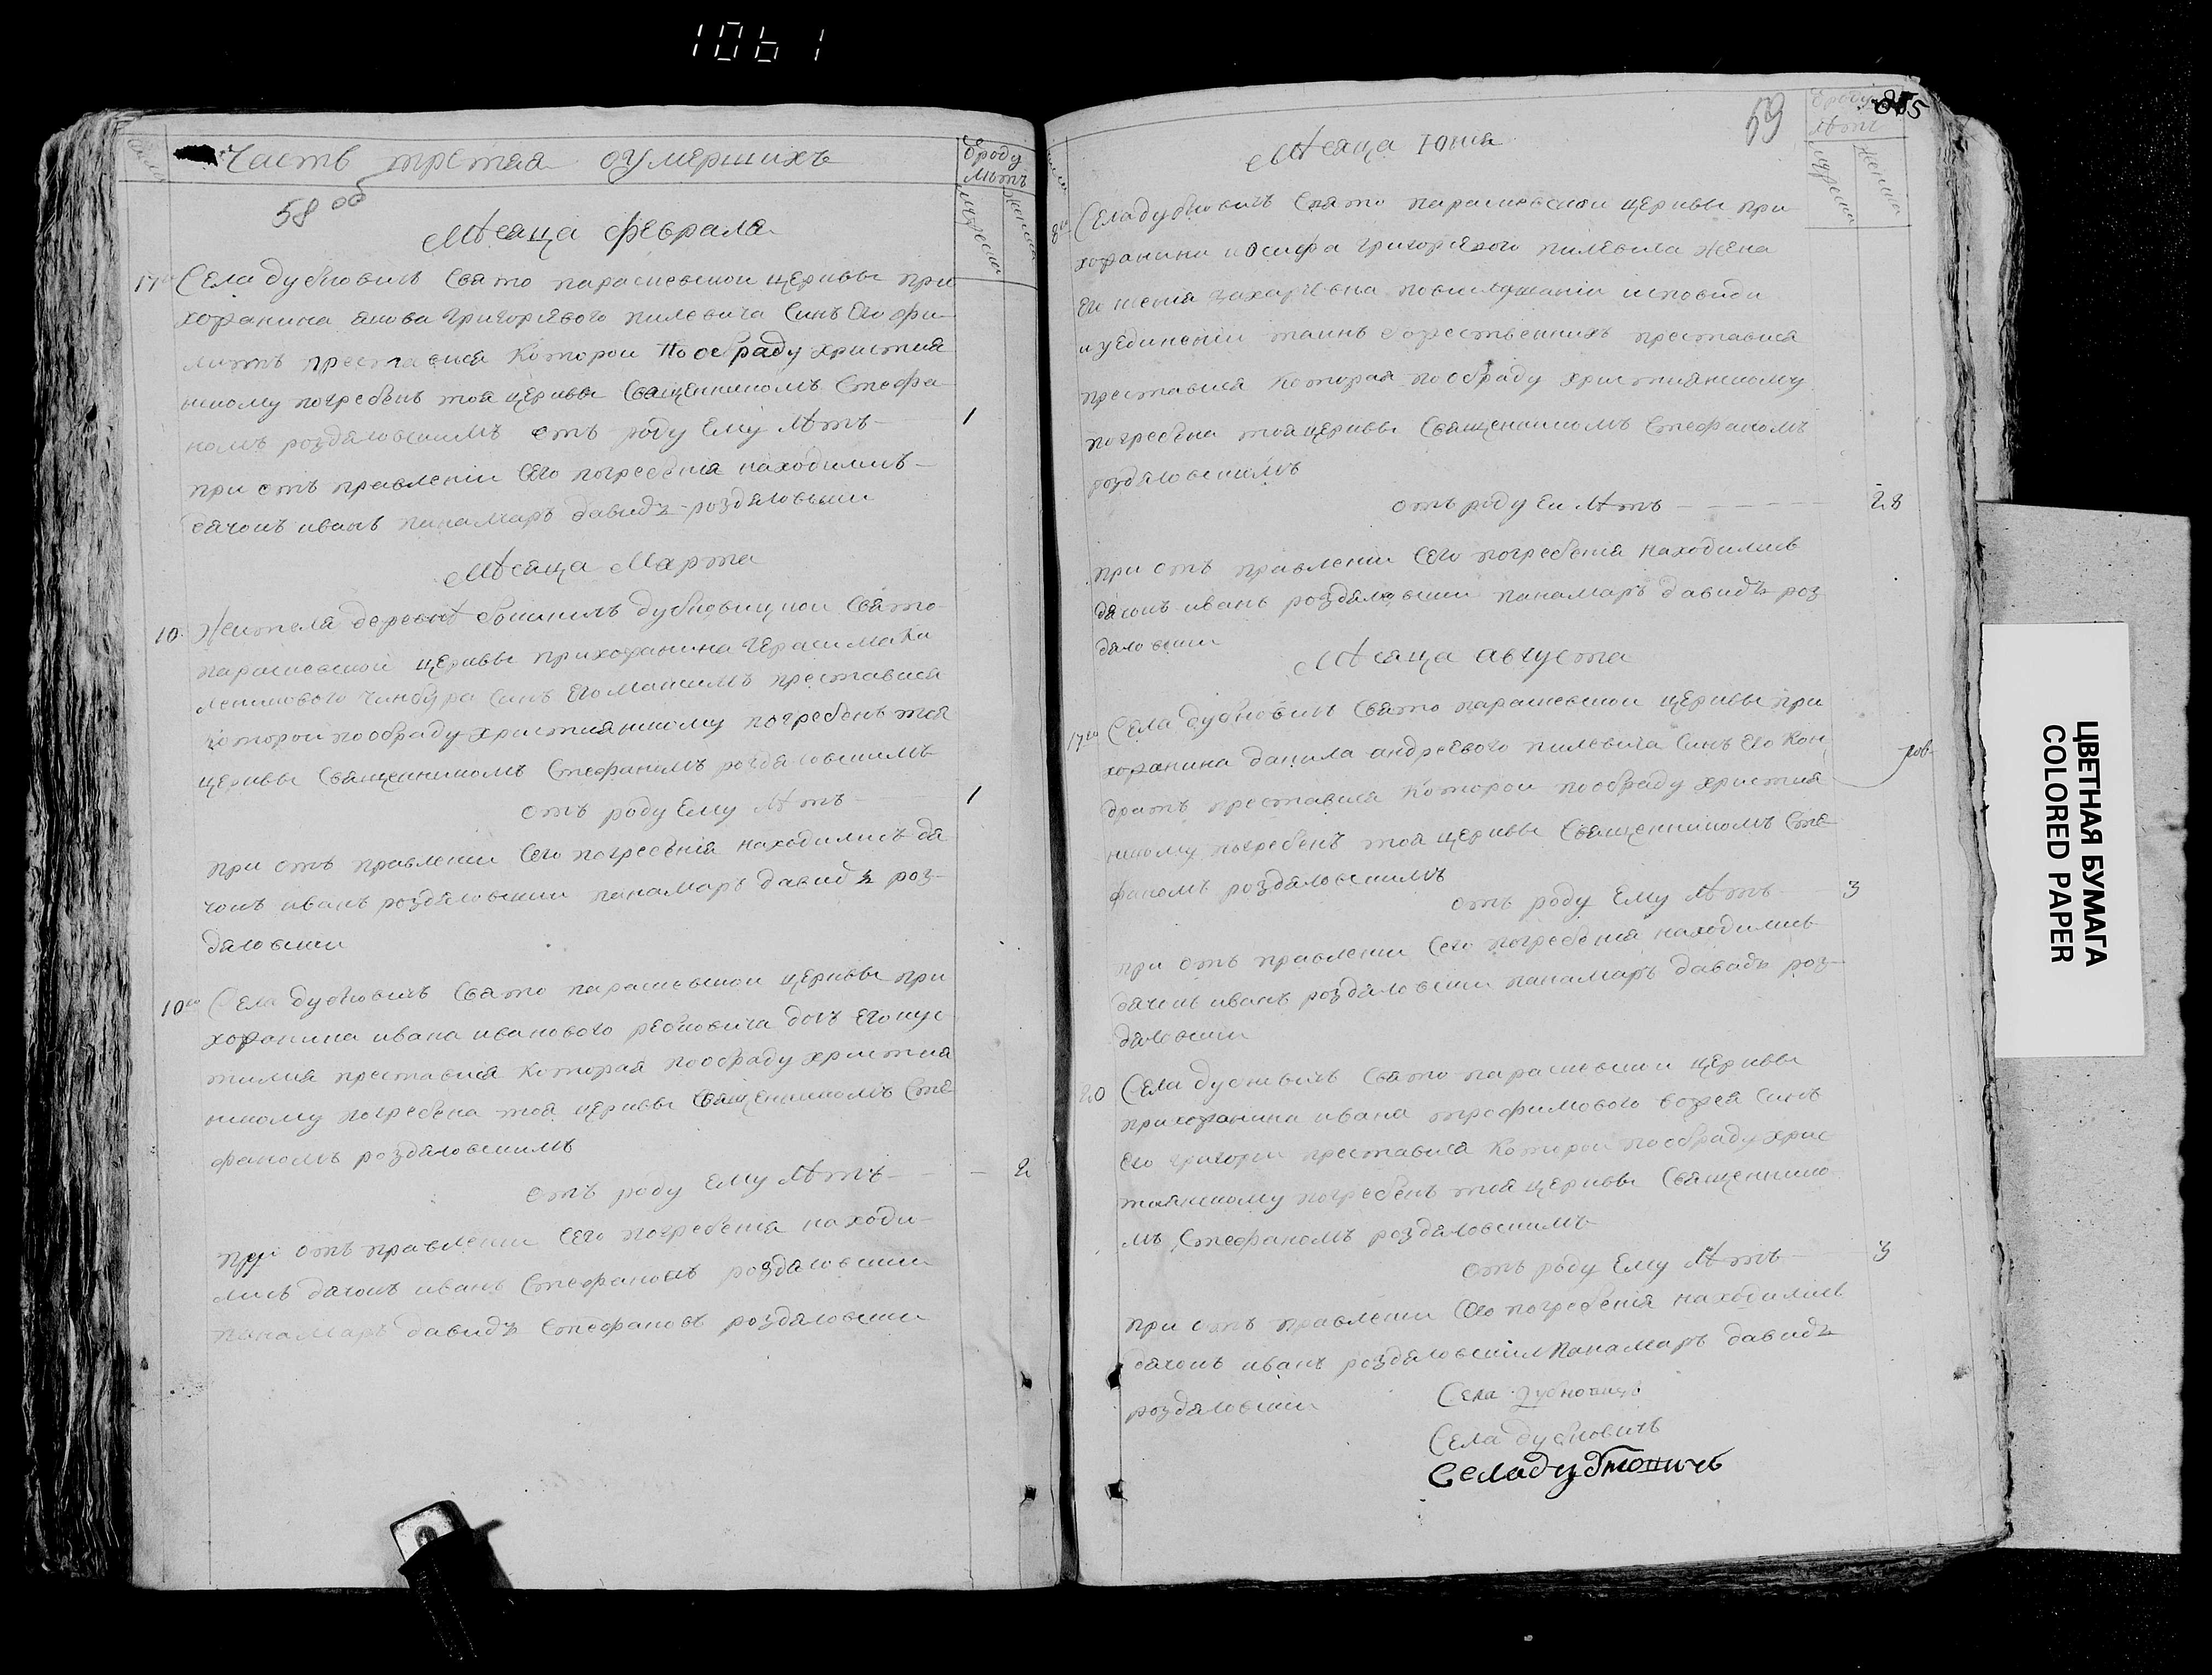 1061
Часть третая оумершихъ
58 об
Числа
Ѿроду
лѣтъ
мужеска
женска
Мѣсяца февраля
17го Села дубновичъ Свято параскевской церквы при
хожанина якова григориевого пилевича Синъ Его фи
липъ преставися Которои По обраду християн
нскому погребенъ тоя церквы Священникомъ Стефа
номъ роздяловскимъ отъ роду Ему лѣтъ 1
при отъ правленіи Сего погребенія находились
дячокъ иванъ панамаръ давидъ роздяловский
Мѣсяца Марта
10 Жителя деревнѣ дубновицкои Свято
параскевской церквы прихожанина Герасима
Синъ Его Максимъ преставися
которои по обраду християнскому погребенъ тоя
церквы Священникомъ Стефаномъ роздяловскимъ
отъ роду Ему лѣтъ 1
при отъ правлении Сего погребенія находились дя
чокъ иванъ роздяловский панамаръ давидъ роз
дяловский
10го Села дубновичъ Свято параскевской церквы при
хожанина ивана иванового дочъ Его
преставися Которая по обраду християн
нскому погребена тоя церквы Священникомъ Сте
фаномъ роздяловскимъ
отъ роду Ему лѣтъ 2
при отъ правлении Сего погребенія находи
лись дячокъ иванъ Стефановъ роздяловский
панамаръ давидъ Стефановъ роздяловский
59
Ѿроду
лѣтъ
мужеска
женска
Мѣсяца Юнія
8го Села дубновичъ Свято параскевской церквы при
хожанина иосифа григориевого пилевича Жена
Его ксенія захариевна исповиди
таинъ божественнихъ преставися
преставися Которая по обраду християнскому
погребена тоя церквы Священникомъ Стефаномъ
роздяловскимъ
отъ роду Еи лѣтъ 28
при отъ правлении Сего погребенія находились
дячокъ иванъ роздяловский панамаръ давидъ роз
дяловский
Мѣсяца августа
17го Села дубновичъ Свято параскевской церквы при
хожанина данила андреевого пилевича Синъ Его Кон
дратъ преставися Которои по обраду християн
нскому погребенъ тоя церквы Священникомъ Сте
фаномъ роздяловскимъ
отъ роду Ему лѣтъ 3
при отъ правлении Сего погребенія находились
дячокъ иванъ роздяловский панамаръ давидъ роз
дяловский
20 Села дубновичъ Свято параскевской церквы
прихожанина ивана трофимового Синъ
Его григорий преставися Которои по обраду хрис
тиянскому погребенъ тоя церквы Священнико
мъ Стефаномъ роздяловскимъ
отъ роду Ему лѣтъ 3
при отъ правлении Сего погребенія находились
дячокъ иванъ роздяловский панамаръ давидъ
роздяловский
Села дубновичъ
Села дубновичъ
Села дубновичъ
ЦВЕТНАЯ БУМАГА
COLORED PAPER